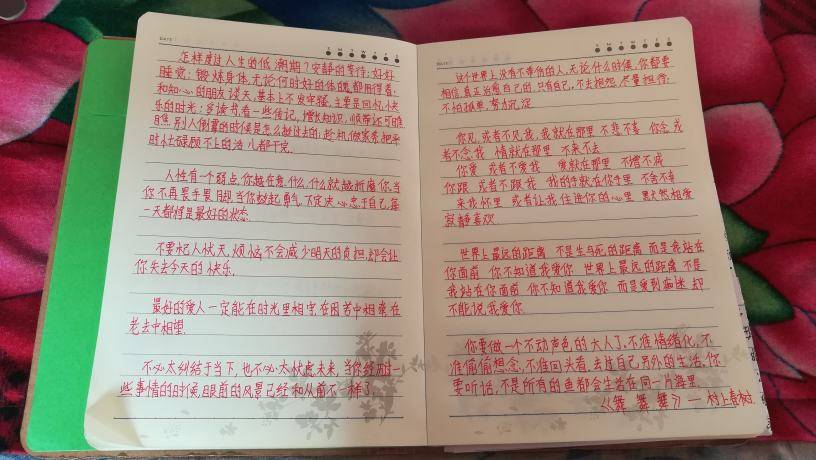 DATE
S M T W T F S
怎样度过人生的低潮期？安静的等待；好好
睡觉；锻炼身体，无论何时好的体魄都用得着；
和知心的朋友谈天，基本上不发牢骚，主要是回忆快
乐的时光；多读书，看一些传记，增长知识，顺带还可瞧
瞧别人倒霉的时候是怎么挺过去的；趁机做家务把平
时忙碌顾不上的活儿都干完.
人性有一个弱点，你越在意什么，什么就越折磨你，当
你不再畏手畏脚，当你鼓起勇气，下定决心忠于自己，每
一天都将是最好的状态.
不要杞人忧天，烦恼不会减少明天的负担，却会让
你失去今天的快乐.
最好的爱人一定能在时光里相守，在困苦中相牵，在
老去中相望.
不必太纠结于当下，也不必太忧虑未来，当你经历过一
些事情的时候，眼前的风景已经和从前不一样了.
DATE
S M T W T F S
这个世界上没有不带伤的人，无论什么时候，你都要
相信，真正治愈自己的，只有自己，不去抱怨，尽量担待；
不怕孤单，努力沉淀
你见，或者不见我，我就在那里 不悲不喜 你念 或
者不念我 情就在那里 不来不去
你爱 或者不爱我 爱就在那里 不增不减
你跟 或者不跟我 我的手就在你手里 不舍不弃
来我怀里 或者让我住进你的心里 默然 相爱
寂静 喜欢
世界上最远的距离 不是生与死的距离 而是我站在
你面前 你不知道我爱你 世界上最远的距离 不是
我站在你面前 你不知道我爱你 而是爱到痴迷 却
不能说我爱你.
你要做一个不动声色的大人了，不准情绪化，不
准偷偷想念，不准回头看，去过自己另外的生活，你
要听话，不是所有的鱼都会生活在同一片海里.
《舞 舞 舞》——村上春树.